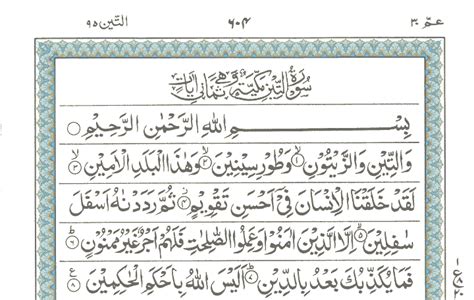 عمّ ٣٠ ٦٠٤ التين ٩٥
سُوْرَةُ التِّيْنِ مَكِّيَّةٌ وَّهِيَ ثَمَانِيْ اٰيَاتٍ
بِسْمِ اللّٰهِ الرَّحْمٰنِ الرَّحِيْمِ
وَالتِّيْنِ وَالزَّيْتُوْنِ ۙ﴿۱﴾ وَطُوْرِ سِيْنِيْنَ ۙ﴿۲﴾ وَهٰذَا الْبَلَدِ الْاَمِيْنِ ۙ﴿۳﴾
لَقَدْ خَلَقْنَا الْاِنْسَانَ فِيْۤ اَحْسَنِ تَقْوِيْمٍ ۫﴿۴﴾ ثُمَّ رَدَدْنٰهُ اَسْفَلَ
سٰفِلِيْنَ ۙ﴿۵﴾ اِلَّا الَّذِيْنَ اٰمَنُوْا وَعَمِلُوا الصّٰلِحٰتِ فَلَهُمْ اَجْرٌ غَيْرُ مَمْنُوْنٍ ؕ﴿۶﴾
فَمَا يُكَذِّبُكَ بَعْدُ بِالدِّيْنِ ؕ﴿۷﴾ اَلَيْسَ اللّٰهُ بِاَحْكَمِ الْحٰكِمِيْنَ ﴿۸﴾ ع